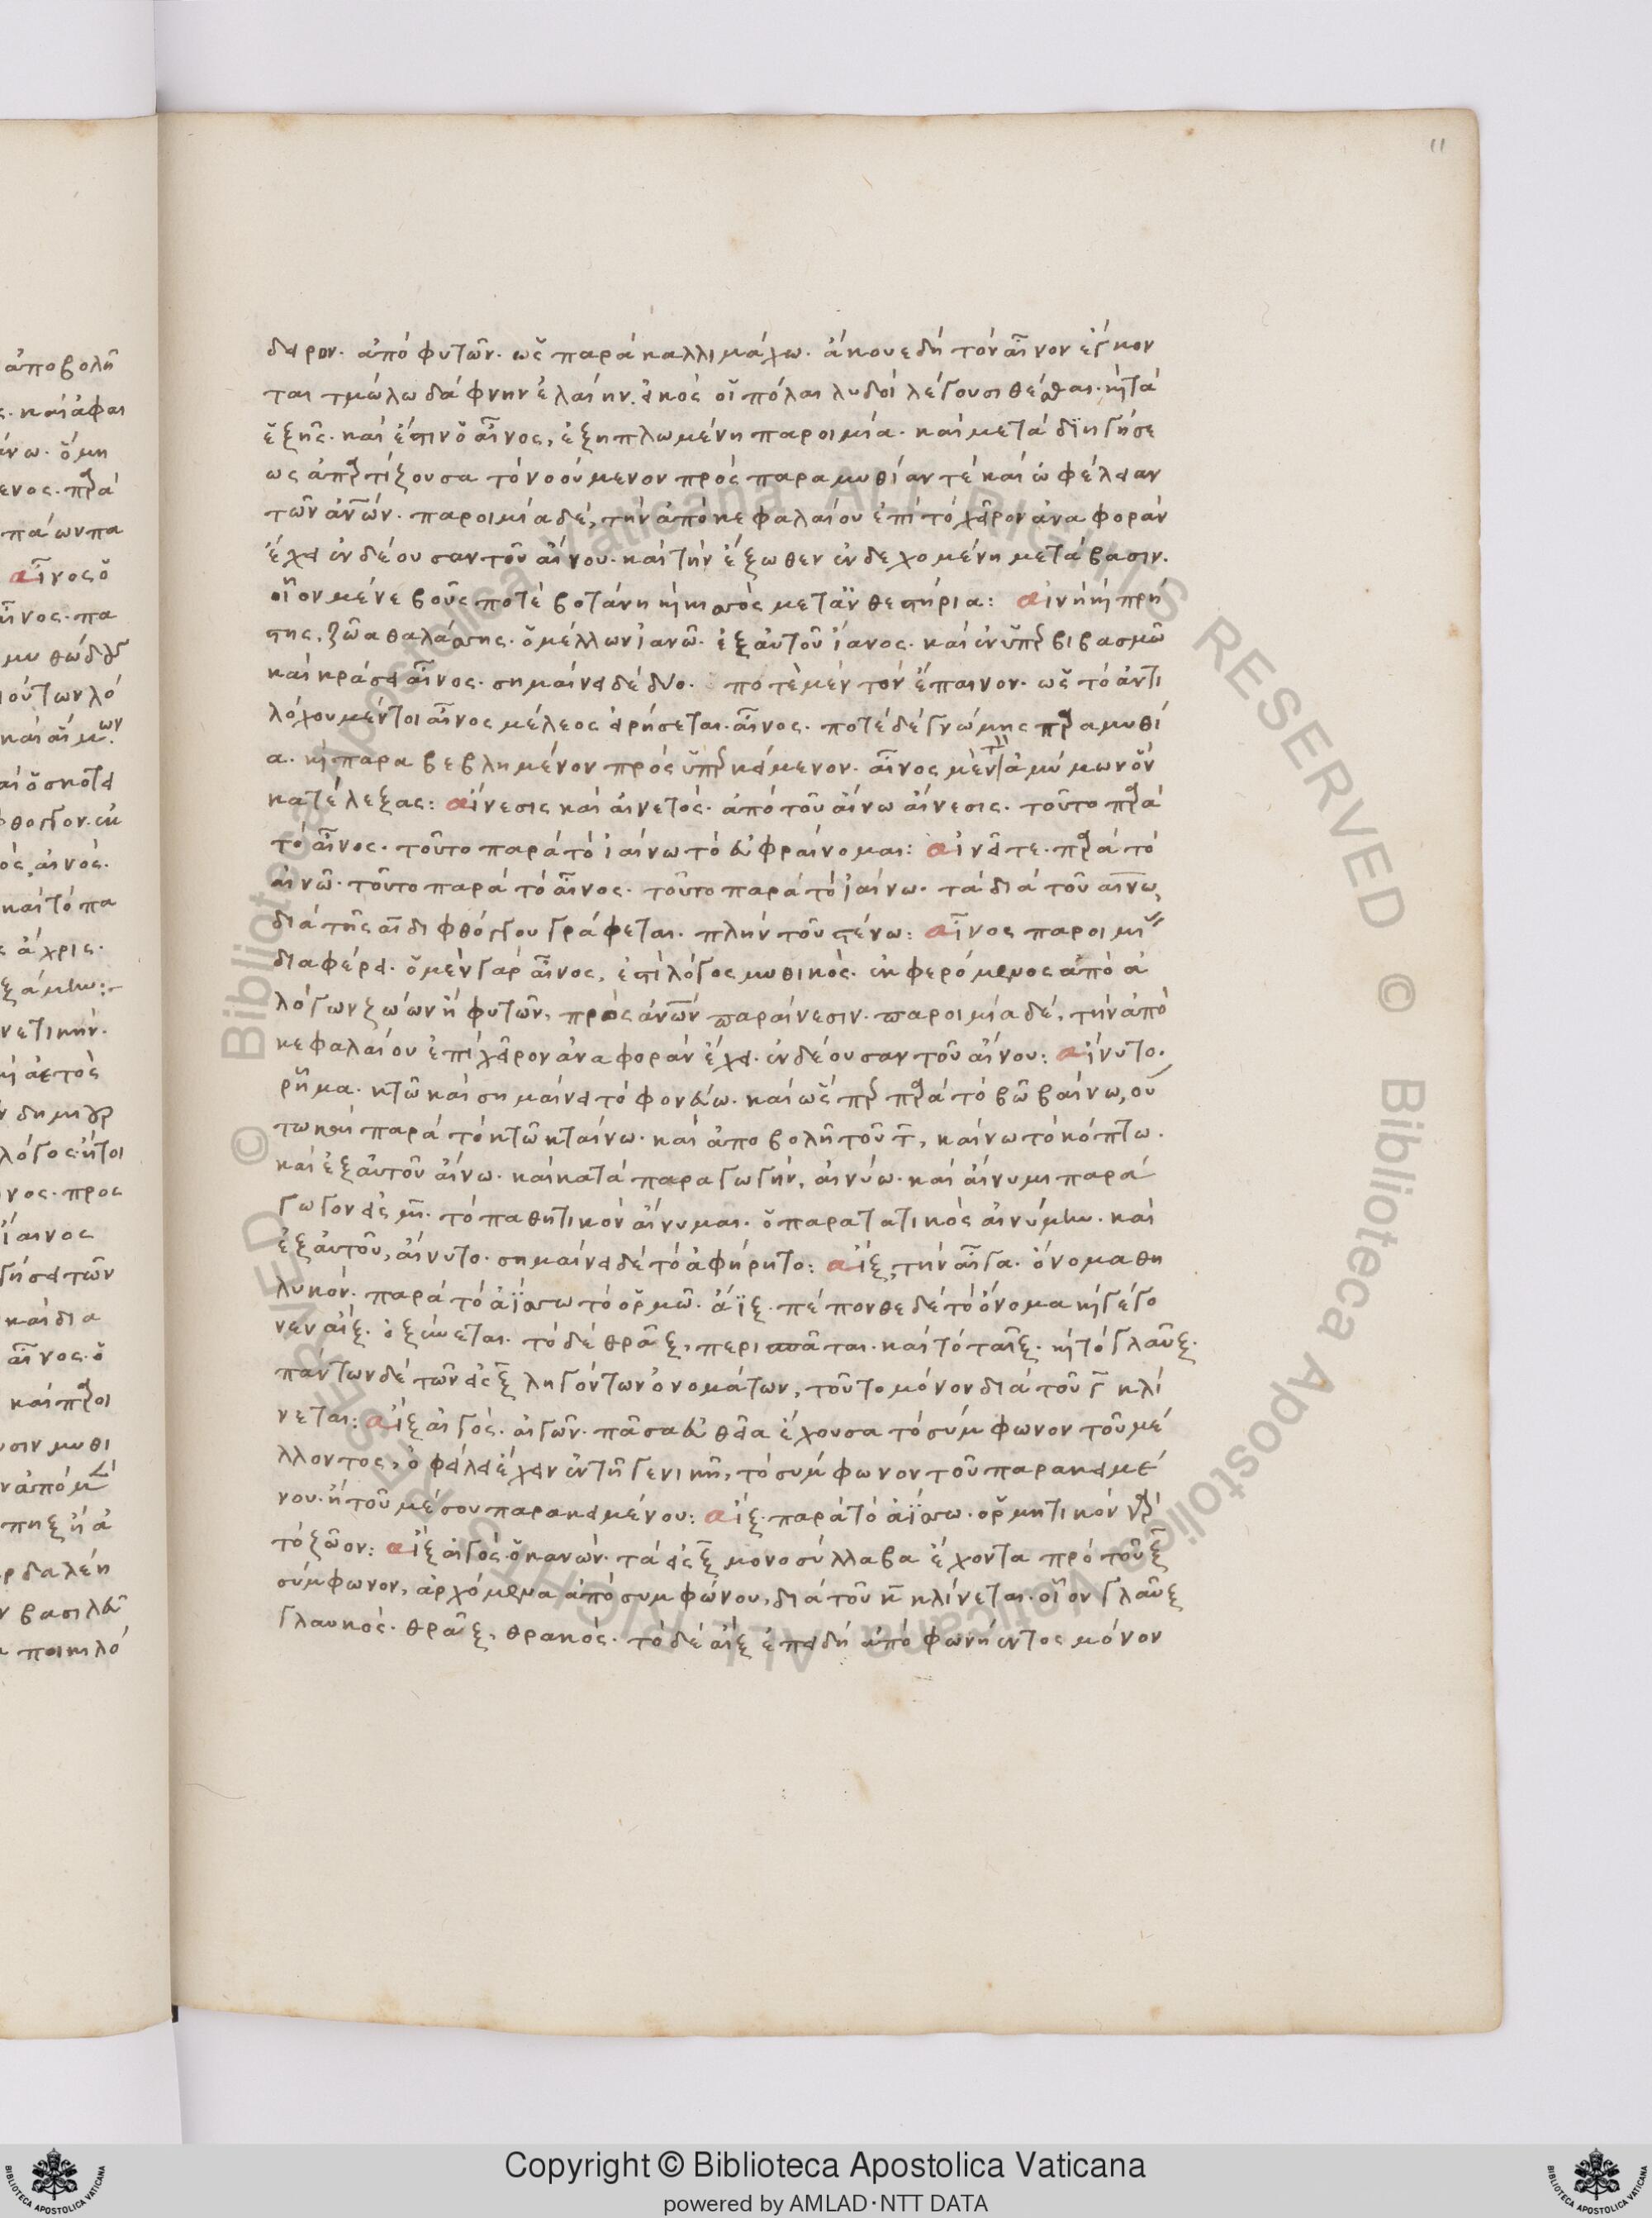 11
δαρον. ἀπὸ φυτῶν. ὡς παρὰ καλλιμάχω. ἄκουε δὴ τὸν αἶνον ἔγκον
ται τμώλω δάφνην ἐλαίην. εἰκὸς οἱ πόλαι λυδοὶ λέγουσι θέσθαι. καὶ τὰ
ἑξῆς. καὶ ἔστιν ὁ αἶνος, ἐξηπλωμένη παροιμία. καὶ μετὰ διηγήσε
ως ἀπαρτίζουσα τὸ νοούμενον πρὸς παραμυθίαν τὲ καὶ ὠφέλειαν
τῶν ἀνῶν. παροιμία δέ, τὴν ἀπὸ κεφαλαίου ἐπὶ τὸ χεῖρον ἀναφορὰν
ἔχει ἐνδέουσαν τοῦ αἴνου. καὶ τὴν ἔξωθεν ἐνδεχομένη μετάβασιν.
οἷον μένε βοῦς ποτὲ βοτάνη
στης, ζῶα θαλάσσης. ὁ μέλλων ἰανῶ. ἐξ αὐτοῦ ἴανος. καὶ ἐν ὑπερβιβασμῶ
καὶ κράσει αἶνος. σημαίνει δὲ δύο. ποτὲ μὲν τὸν ἔπαινον. ὡς τὸ ἀντι
λόχου μέντοι αἶνος μέλεος εἰρήσεται. αἶνος. ποτὲ δὲ γνώμης παραμυθί
α. καὶ παραβεβλημένον πρὸς ὑπερκείμενον. αἶνος μέντ ἀμύμων ὃν
κατέλεξας: αἴνεσις καὶ αἰνετός. ἀπὸ τοῦ αἴνω αἴνεσις. τοῦτο παρὰ
τὸ αἶνος. τοῦτο παρὰ τὸ ἰαίνω τὸ εὐφραίνομαι: αἰνεῖτε. παρὰ τὸ
αἰνῶ. τοῦτο παρὰ τὸ αἶνος. τοῦτο παρὰ τὸ ἰαίνω. τὰ διὰ τοῦ αινω,
διὰ τῆς αι διφθόγγου γράφεται. πλὴν τοῦ στένω: αἶνος παροιμι
διαφέρει. ὁ μὲν γὰρ αἶνος, ἐστὶ λόγος μυθικὸς. ἐκφερόμενος ἀπὸ ἀ
λόγων ζώων ἢ φυτῶν, πρὸς ἀνῶν παραίνεσιν. παροιμία δέ, τὴν ἀπὸ
κεφαλαίου ἐπὶ χεῖρον ἀναφορὰν ἔχει. ἐνδέουσαν τοῦ αἴνου: αἴνυτο.
ρῆμα. κτῶ καὶ σημαίνει τὸ φονεύω. καὶ ὥσπερ παρὰ τὸ βῶ βαίνω, οὕ
τω καὶ παρὰ τὸ κτῶ κταίνω. καὶ ἀποβολῆ τοῦ τ, καίνω τὸ κόπτω.
καὶ ἐξ αὐτοῦ αἴνω. καὶ κατὰ παραγωγὴν, αἰνύω. καὶ αἴνυμι παρά
γωγον εἰς μι. τὸ παθητικὸν αἴνυμαι. ὁ παρατατικὸς αἰνύμην. καὶ
ἐξ αὐτοῦ, αἴνυτο. σημαίνει δὲ τὸ ἀφήρητο: αἴξ, τὴν αἶγα. ὄνομα θη
λυκόν. παρὰ τὸ ἀΐσσω τὸ ὁρμῶ. ἄϊξ. πέπονθε δὲ τὸ ὄνομα καὶ γέγο
νεν αἴξ. ὀξύνεται. τὸ δὲ θρᾶξ, περισπᾶται. καὶ τὸ ταῖξ. καὶ τὸ γλαῦξ.
πάντων δὲ τῶν εἰς ξ ληγόντων ὀνομάτων, τοῦτο μόνον διὰ τοῦ γ κλί
νεται: αἴξ αἰγός. αἰγῶν. πᾶσα εὐθεῖα ἔχουσα τὸ σύμφωνον τοῦ μέ
λλοντος, ὀφείλει ἔχειν ἐν τῆ γενικῆ, τὸ σύμφωνον τοῦ παρακειμέ
νου. ἢ τοῦ μέσου παρακειμένου: αἴξ. παρὰ τὸ ἀΐσσω. ὁρμητικὸν γὰρ
τὸ ζῶον: αἴξ αἰγός. ὁ κανών. τὰ εἰς ξ μονοσύλλαβα ἔχοντα πρὸ τοῦ ξ
σύμφωνον, ἀρχόμενα ἀπὸ συμφώνου, διὰ τοῦ κ κλίνεται. οἷον γλαῦξ
γλαυκός. θρᾶξ, θρακός. τὸ δὲ αἴξ ἐπειδὴ ἀπὸ φωνήεντος μόνον